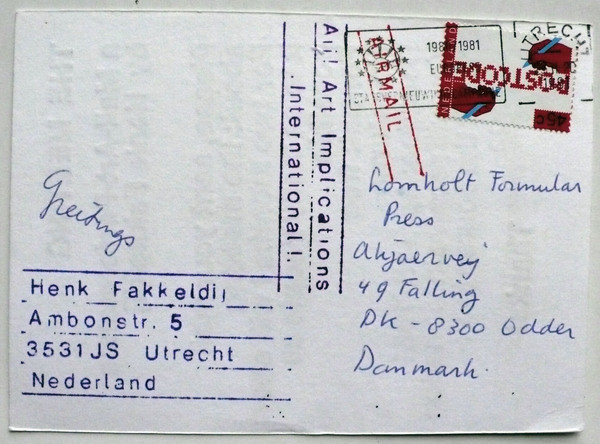 Greitings
Henk Fakkeldij
Ambonstr. 5
3531JS Utrecht
Nederland
Aij! Art Implications
International!
AIRMAIL
1981
UTRECHT
NEDERLAND
POSTCODE
45c
Lomholt Formular
Press
Akjaervej
49 Falling
DK - 8300 Odder
Danmark.